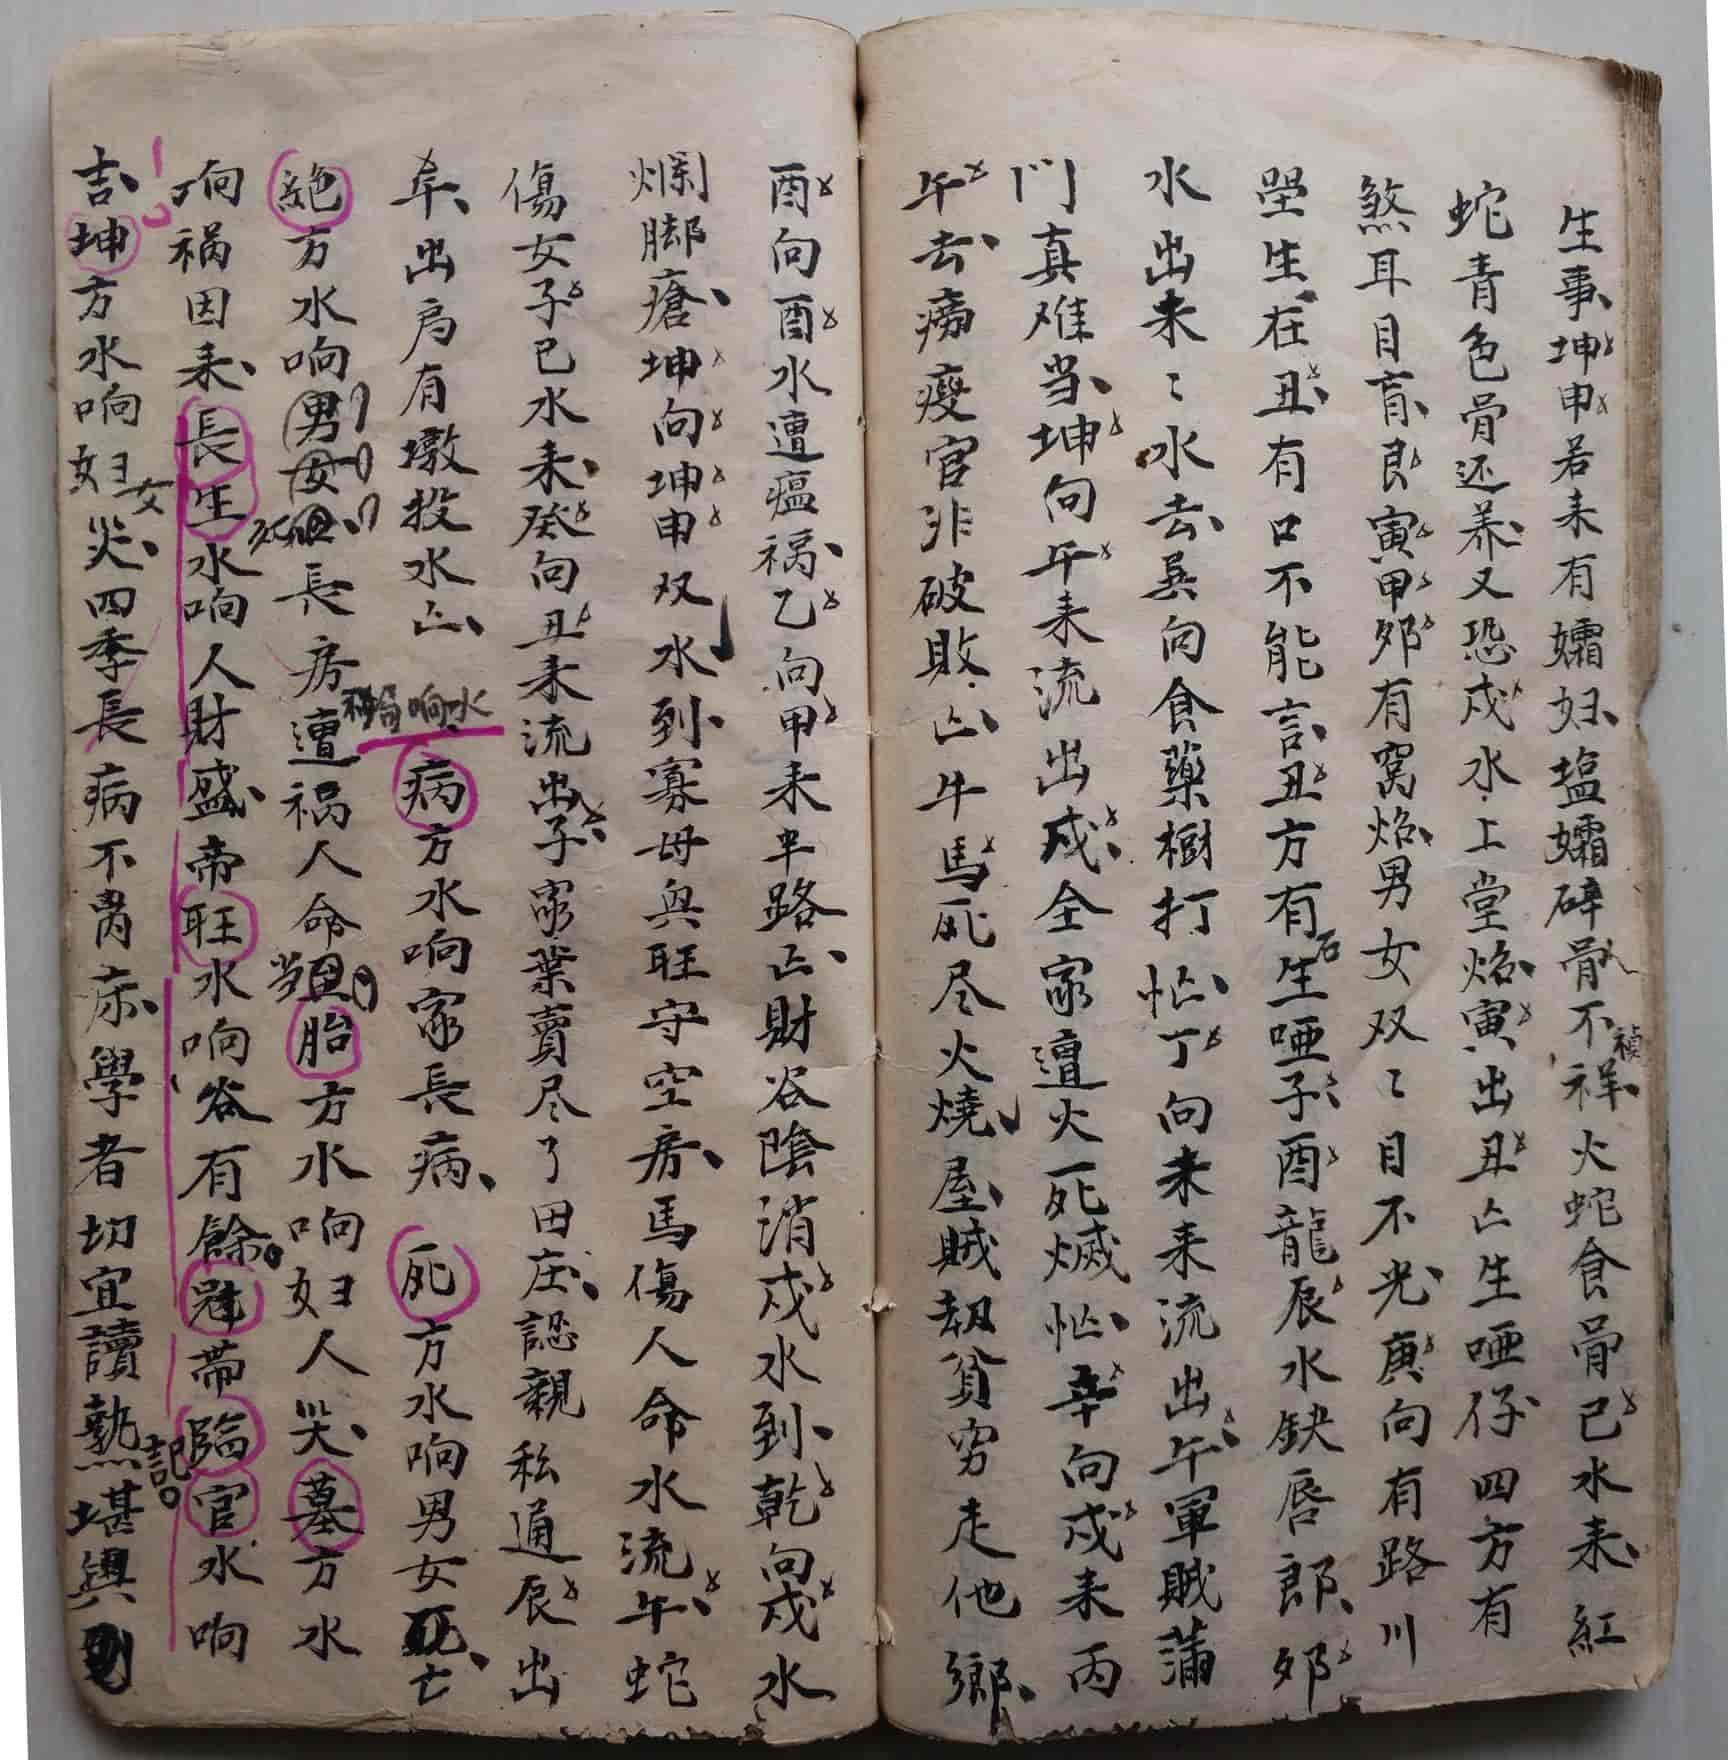 生事坤申若来有孀妇塩孀碎骨不祥火蛇食骨己水来紅
禎
蛇青色骨还养又恐戌水上堂焰寅出丑亡生哑仔四方有
煞耳目盲艮寅甲夘有窩焰男女双〻目不光庚向有路川
堂生在丑有口不能言丑方有生哑子酉龍辰水缺唇郎夘
石
水出来〻水去巽向食藥樹打忙丁向来来流出午軍賊蒲
门真难当坤向午来流出戌全家遭火死滅忙辛向戌来丙
午去癆瘦官非破敗亡牛馬死尽火燒屋賊劫貧穷走他鄉
酉向酉水遭瘟禍乙向甲来半路亡財谷陰消戌水到乾向戌水
爛脚瘡坤向坤申双水到寡母與旺守空房馬傷人命水流午蛇
傷女子巳水来癸向丑来流出子家業賣尽了田庄認親私通辰出
年出局有墩投水亡 病方水响家長病 死方水响男女死亡
响水
絕方水响男女長房遭祸人命胎方水响妇人哭墓方水
死
响祸因来長生水响人財盛帝旺水响谷有餘冠带臨官水响
吉坤方水响妇女災四季長病不离床學者切宜讀熟堪輿
記